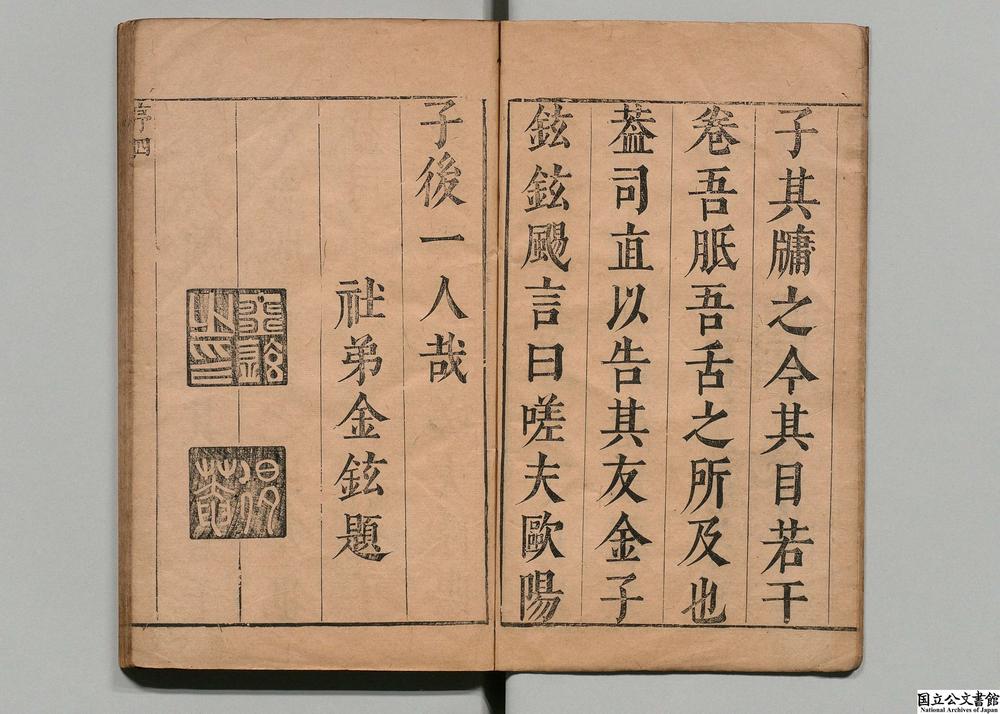 子其牗之今其目若干
卷吾眡吾舌之所及也
葢司直以告其友金子
鉉鉉颺言曰嗟夫歐陽
子後一人哉
社弟金鉉題
金鉉之印
序四
国立公文書館
National Archives of Japan